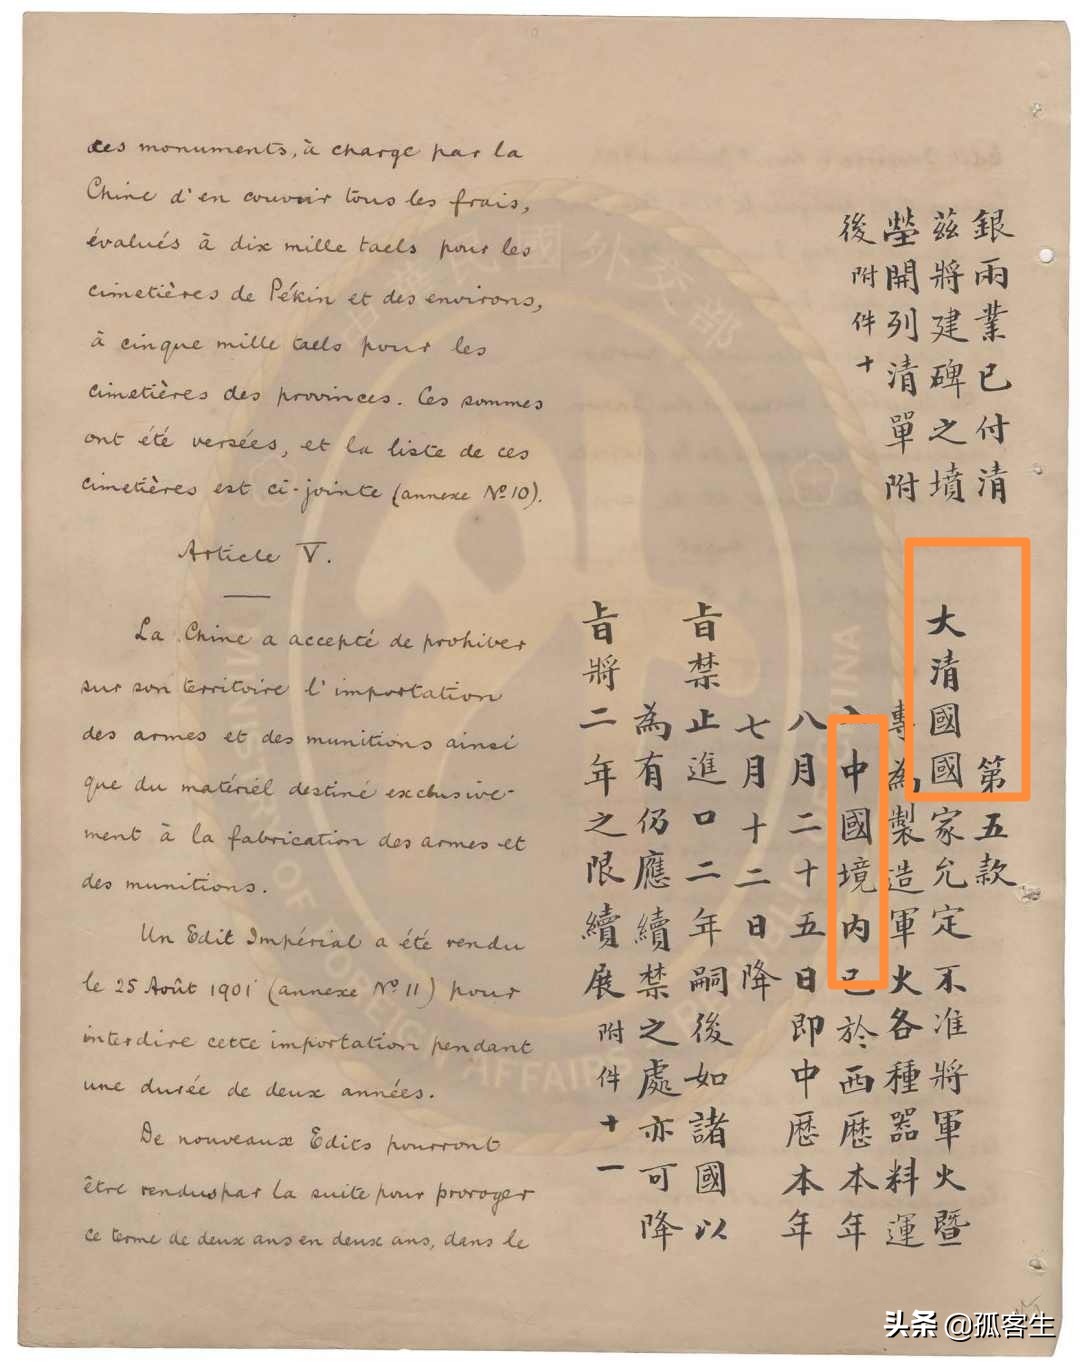 des monuments, à charge par la
Chine d'en couvrir tous les frais,
évalués à dix mille taels pour les
cimetières de Pékin et des environs,
à cinque mille taels pour les
cimetières des provinces. Ces sommes
ont été versées, et la liste de ces
cimetières est ci-jointe (annexe Nº 10).
Article V.
La Chine a accepté de prohiber
sur son territoire l'importation
des armes et des munitions ainsi
que du matériel destiné exclusive-
ment à la fabrication des armes et
des munitions.
Un Edit Impérial a été rendu
le 25 Août 1901 (annexe Nº 11) pour
interdire cette importation pendant
une durée de deux années.
De nouveaux Edits pourront
être rendus par la suite pour proroger
ce terme de deux ans en deux ans, dans le
銀兩業已付清
茲將建碑之墳
塋開列清單附
後附件十
第五款
大清國國家允定不准將軍火暨
專為製造軍火各種器料運
中國境內已於西歷本年
八月二十五日即中歷本年
七月十二日降
旨禁止進口二年嗣後如諸國以
為有仍應續禁之處亦可降
旨將二年之限續展附件十一
中華民國外交部
MINISTRY OF FOREIGN AFFAIRS
头条 @孤客生